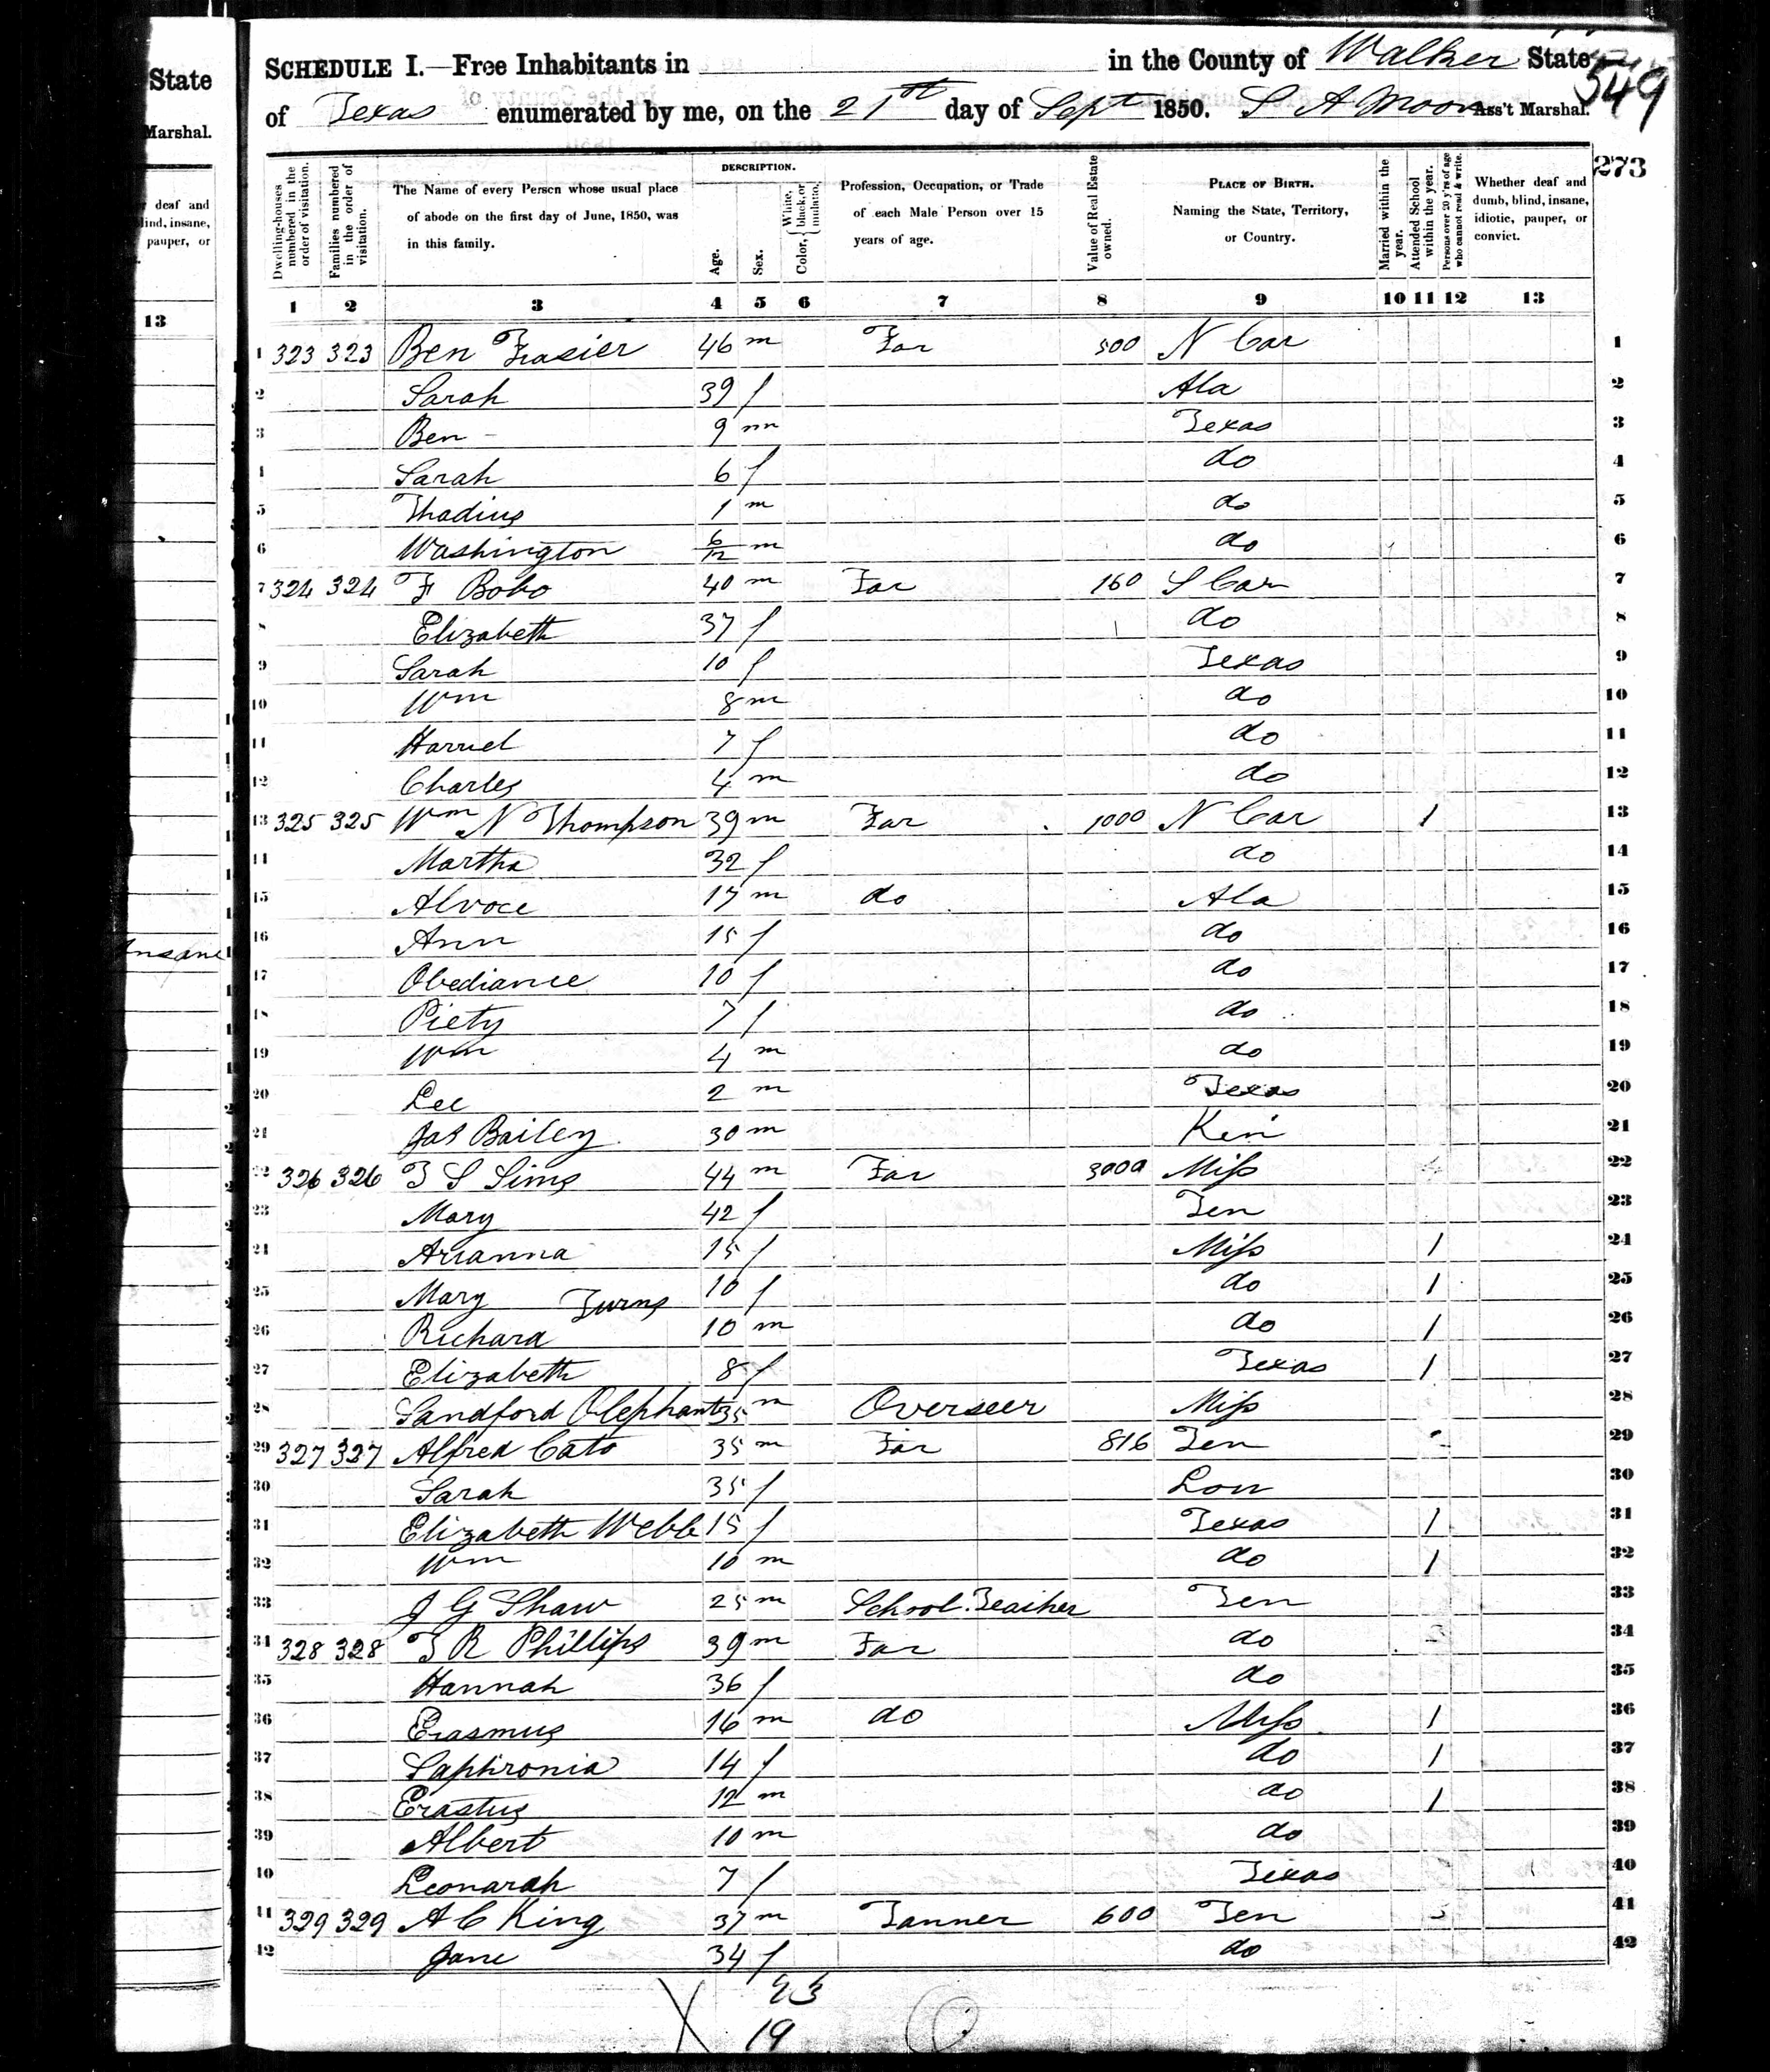 State
Marshal.
deaf and
blind, insane,
pauper, or
13
Insane
SCHEDULE I.—Free Inhabitants in in the County of Walker State
of Texas enumerated by me, on the 21st day of Sept 1850. S A Moon Ass't Marshal.
549
273
Dwelling-houses numbered in the order of visitation.
Families numbered in the order of visitation.
The Name of every Person whose usual place of abode on the first day of June, 1850, was in this family.
DESCRIPTION.
Age.
Sex.
Color, { White, black, or mulatto.
Profession, Occupation, or Trade of each Male Person over 15 years of age.
Value of Real Estate owned.
PLACE OF BIRTH. Naming the State, Territory, or Country.
Married within the year.
Attended School within the year.
Persons over 20 y'rs of age who cannot read & write.
Whether deaf and dumb, blind, insane, idiotic, pauper, or convict.
1 2 3 4 5 6 7 8 9 10 11 12 13
1 323 323 Ben Frasier 46 m Far 500 N Car 1
2 Sarah 39 f Ala 2
3 Ben 9 m Texas 3
4 Sarah 6 f do 4
5 Thadius 1 m do 5
6 Washington 6/12 m do 6
7 324 324 F Bobo 40 m Far 160 S Car 7
8 Elizabeth 37 f do 8
9 Sarah 10 f Texas 9
10 Wm 8 m do 10
11 Harriet 7 f do 11
12 Charles 4 m do 12
13 325 325 Wm N Thompson 39 m Far 1000 N Car 1 13
14 Martha 32 f do 14
15 17 m do Ala 15
16 Ann 15 f do 16
17 Obediance 10 f do 17
18 Piety 7 f do 18
19 Wm 4 m do 19
20 Lee 2 m Texas 20
21 Jas Bailey 30 m Ken 21
22 326 326 T S Sims 44 m Far 3000 Miss 22
23 Mary 42 f Ten 23
24 Arianna 15 f Miss 1 24
25 Mary 10 f do 1 25
26 Richard 10 m do 1 26
27 Elizabeth 8 f Texas 1 27
28 Sandford Olephant 35 m Overseer Miss 28
29 327 327 Alfred Cato 35 m Far 816 Ten 29
30 Sarah 35 f Lou 30
31 Elizabeth Webb 15 f Texas 1 31
32 Wm 10 m do 1 32
33 J G Shaw 25 m School Teacher Ten 33
34 328 328 T R Phillips 39 m Far do 34
35 Hannah 36 f do 35
36 Erasmus 16 m do Miss 1 36
37 Saphronia 14 f do 1 37
38 Erastus 12 m do 1 38
39 Albert 10 m do 39
40 Leonarah 7 f Texas 40
41 329 329 A C King 37 m Tanner 600 Ten 41
42 Jane 34 f do 42
X 23
19